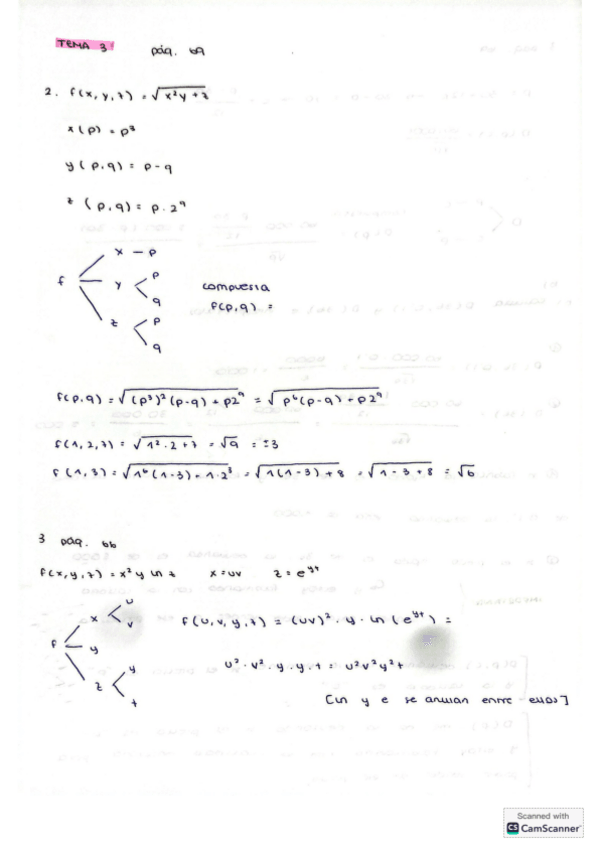 TEMA 3 pág. 69
2. f(x, y, z) = √x²y + z
x(p) = p³
y(p, q) = p - q
z (p, q) = p. 2^q
x - p
f y p
q
z p
q
compuesta
f(p, q) =
f(p, q) = √(p³)² (p-q) + p2^q = √p⁶(p-q) + p2^q
f(1, 2, 7) = √1² · 2 + 7 = √9 = ±3
f(1, 3) = √1⁶(1-3) + 1·2³ = √1(1-3) + 8 = √1-3+8 = √6
3 pág. 66
f(x, y, z) = x² y ln z x = uv z = e^yt
u
x v
f y
z y
t
f(u, v, y, t) = (uv)² · y · ln (e^yt) =
u² · v² · y · y · t = u² v² y² t
[ln y e se anulan entre ellos]
Scanned with
CS CamScanner